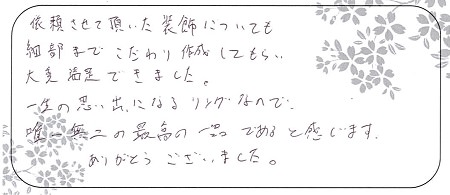 依頼させて頂いた装飾についても
細部までこだわり作成してもらい
大変満足できました。
一生の思い出になるリングなので、
唯一無二の最高の一品であると感じます。
ありがとうございました。